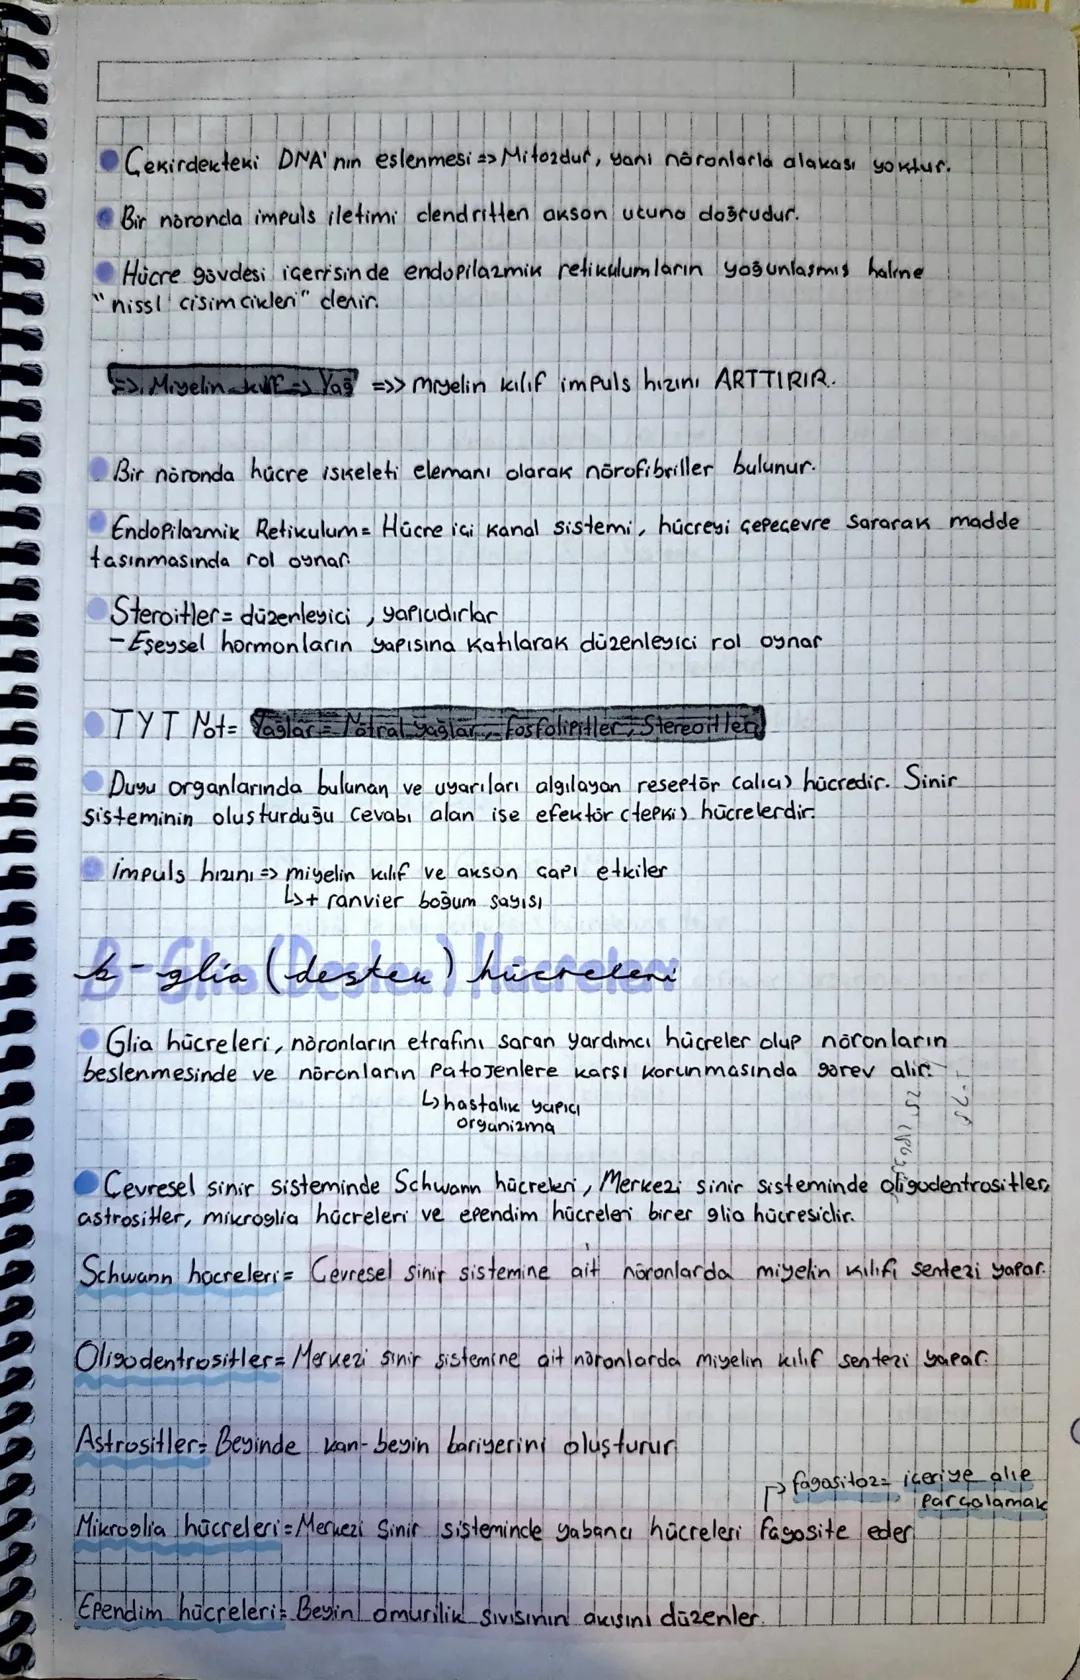 Çekirdekteki DNA'nın eşlenmesi => Mitozdur, yani nöronlarla alakası yoktur.
Bir nöronda impuls iletimi dendritten akson ucuna doğrudur.
Hücre gövdesi içerisinde endopilazmik retikulumların yoğunlaşmış haline
"nissl cisimcikleri" denir.
=> Miyelin kılıf => Yağ =>> miyelin kılıf impuls hızını ARTTIRIR.
Bir nöronda hücre iskeleti elemanı olarak nörofibriller bulunur.
Endopilazmik Retikulum= Hücre içi kanal sistemi, hücreyi çepeçevre sararak madde
taşınmasında rol oynar.
Steroitler= düzenleyici, yapıcıdırlar
- Eşeysel hormonların yapısına katılarak düzenleyici rol oynar
TYT Not= Yağlar= Nötral yağlar, fosfolipitler, Stereoitler
Duyu organlarında bulunan ve uyarıları algılayan reseptör (alıcı) hücredir. Sinir
sisteminin oluşturduğu cevabı alan ise efektör (tepki) hücrelerdir.
impuls hızını => miyelin kılıf ve akson çapı etkiler
↳+ ranvier boğum sayısı
b- glia (destek) hücreleri
Glia hücreleri, nöronların etrafını saran yardımcı hücreler olup nöronların
beslenmesinde ve nöronların patojenlere karşı korunmasında görev alır.
↳hastalık yapıcı
organizma
Çevresel sinir sisteminde Schwann hücreleri, Merkezi sinir sisteminde oligodentrositler,
astrositler, mikroglia hücreleri ve ependim hücreleri birer glia hücresidir.
Schwann hücreleri= Çevresel sinir sistemine ait nöronlarda miyelin kılıfı sentezi yapar.
Oligodentrositler= Merkezi sinir sistemine ait nöronlarda miyelin kılıf sentezi yapar.
Astrositler= Beyinde kan-beyin bariyerini oluşturur
↱ fagositoz= içeriye alıp
parçalamak
Mikroglia hücreleri= Merkezi Sinir sisteminde yabancı hücreleri fagosite eder
Ependim hücreleri= Beyin omurilik sıvısının akışını düzenler.